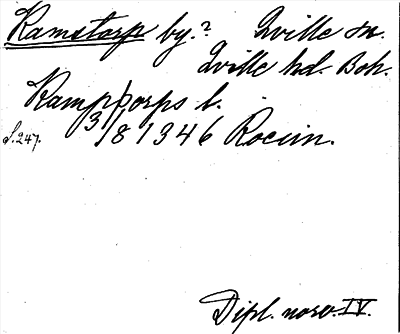 Ramstorp by.? Qville sn.
Qville hd. Boh.
Rampþorps b.
S. 247. 3/8 1346 Rocum.
Dipl. norv. IV.